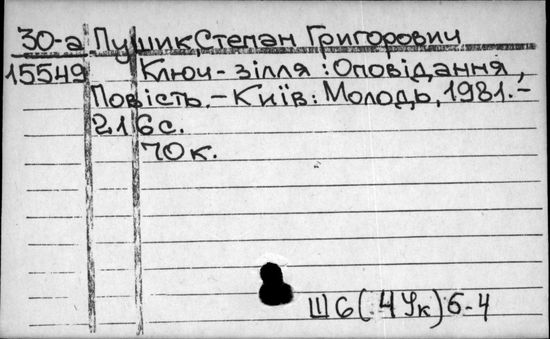 30-а Пушик, Степан Григорович
15549 Ключ-зілля: Оповідання,
Повість. – Київ: Молодь, 1981. –
216 с.
70 к.
Ш6(4Ук)6-4